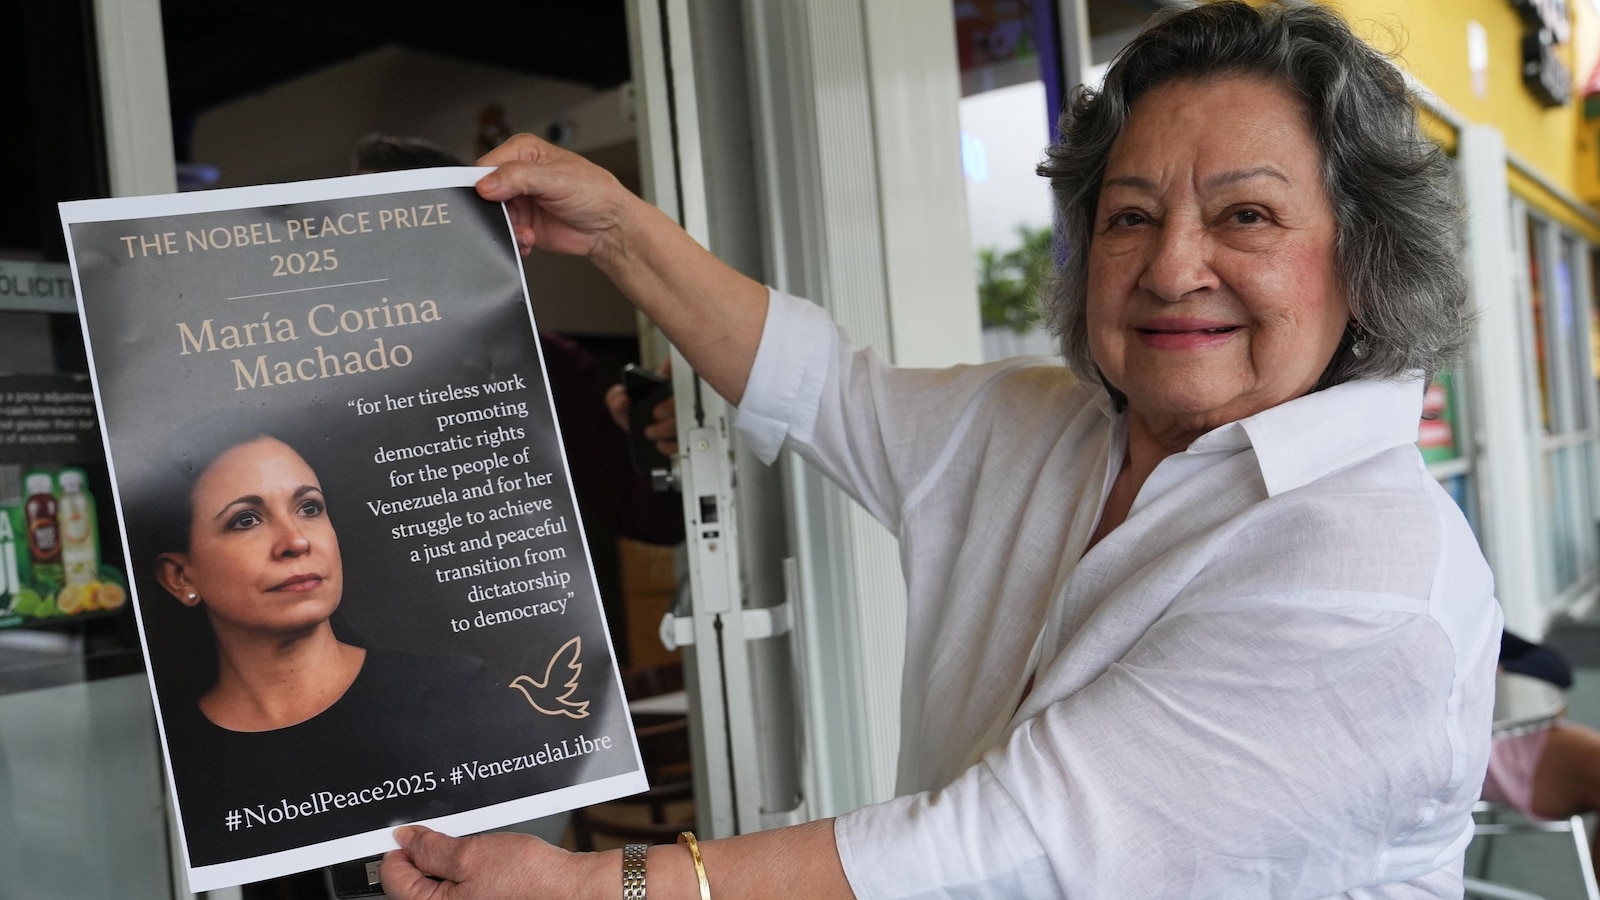 THE NOBEL PEACE PRIZE
2025
María Corina
Machado
“for her tireless work
promoting
democratic rights
for the people of
Venezuela and for her
struggle to achieve
a just and peaceful
transition from
dictatorship
to democracy”
#NobelPeace2025 · #VenezuelaLibre
OLICIT
of acceptance.